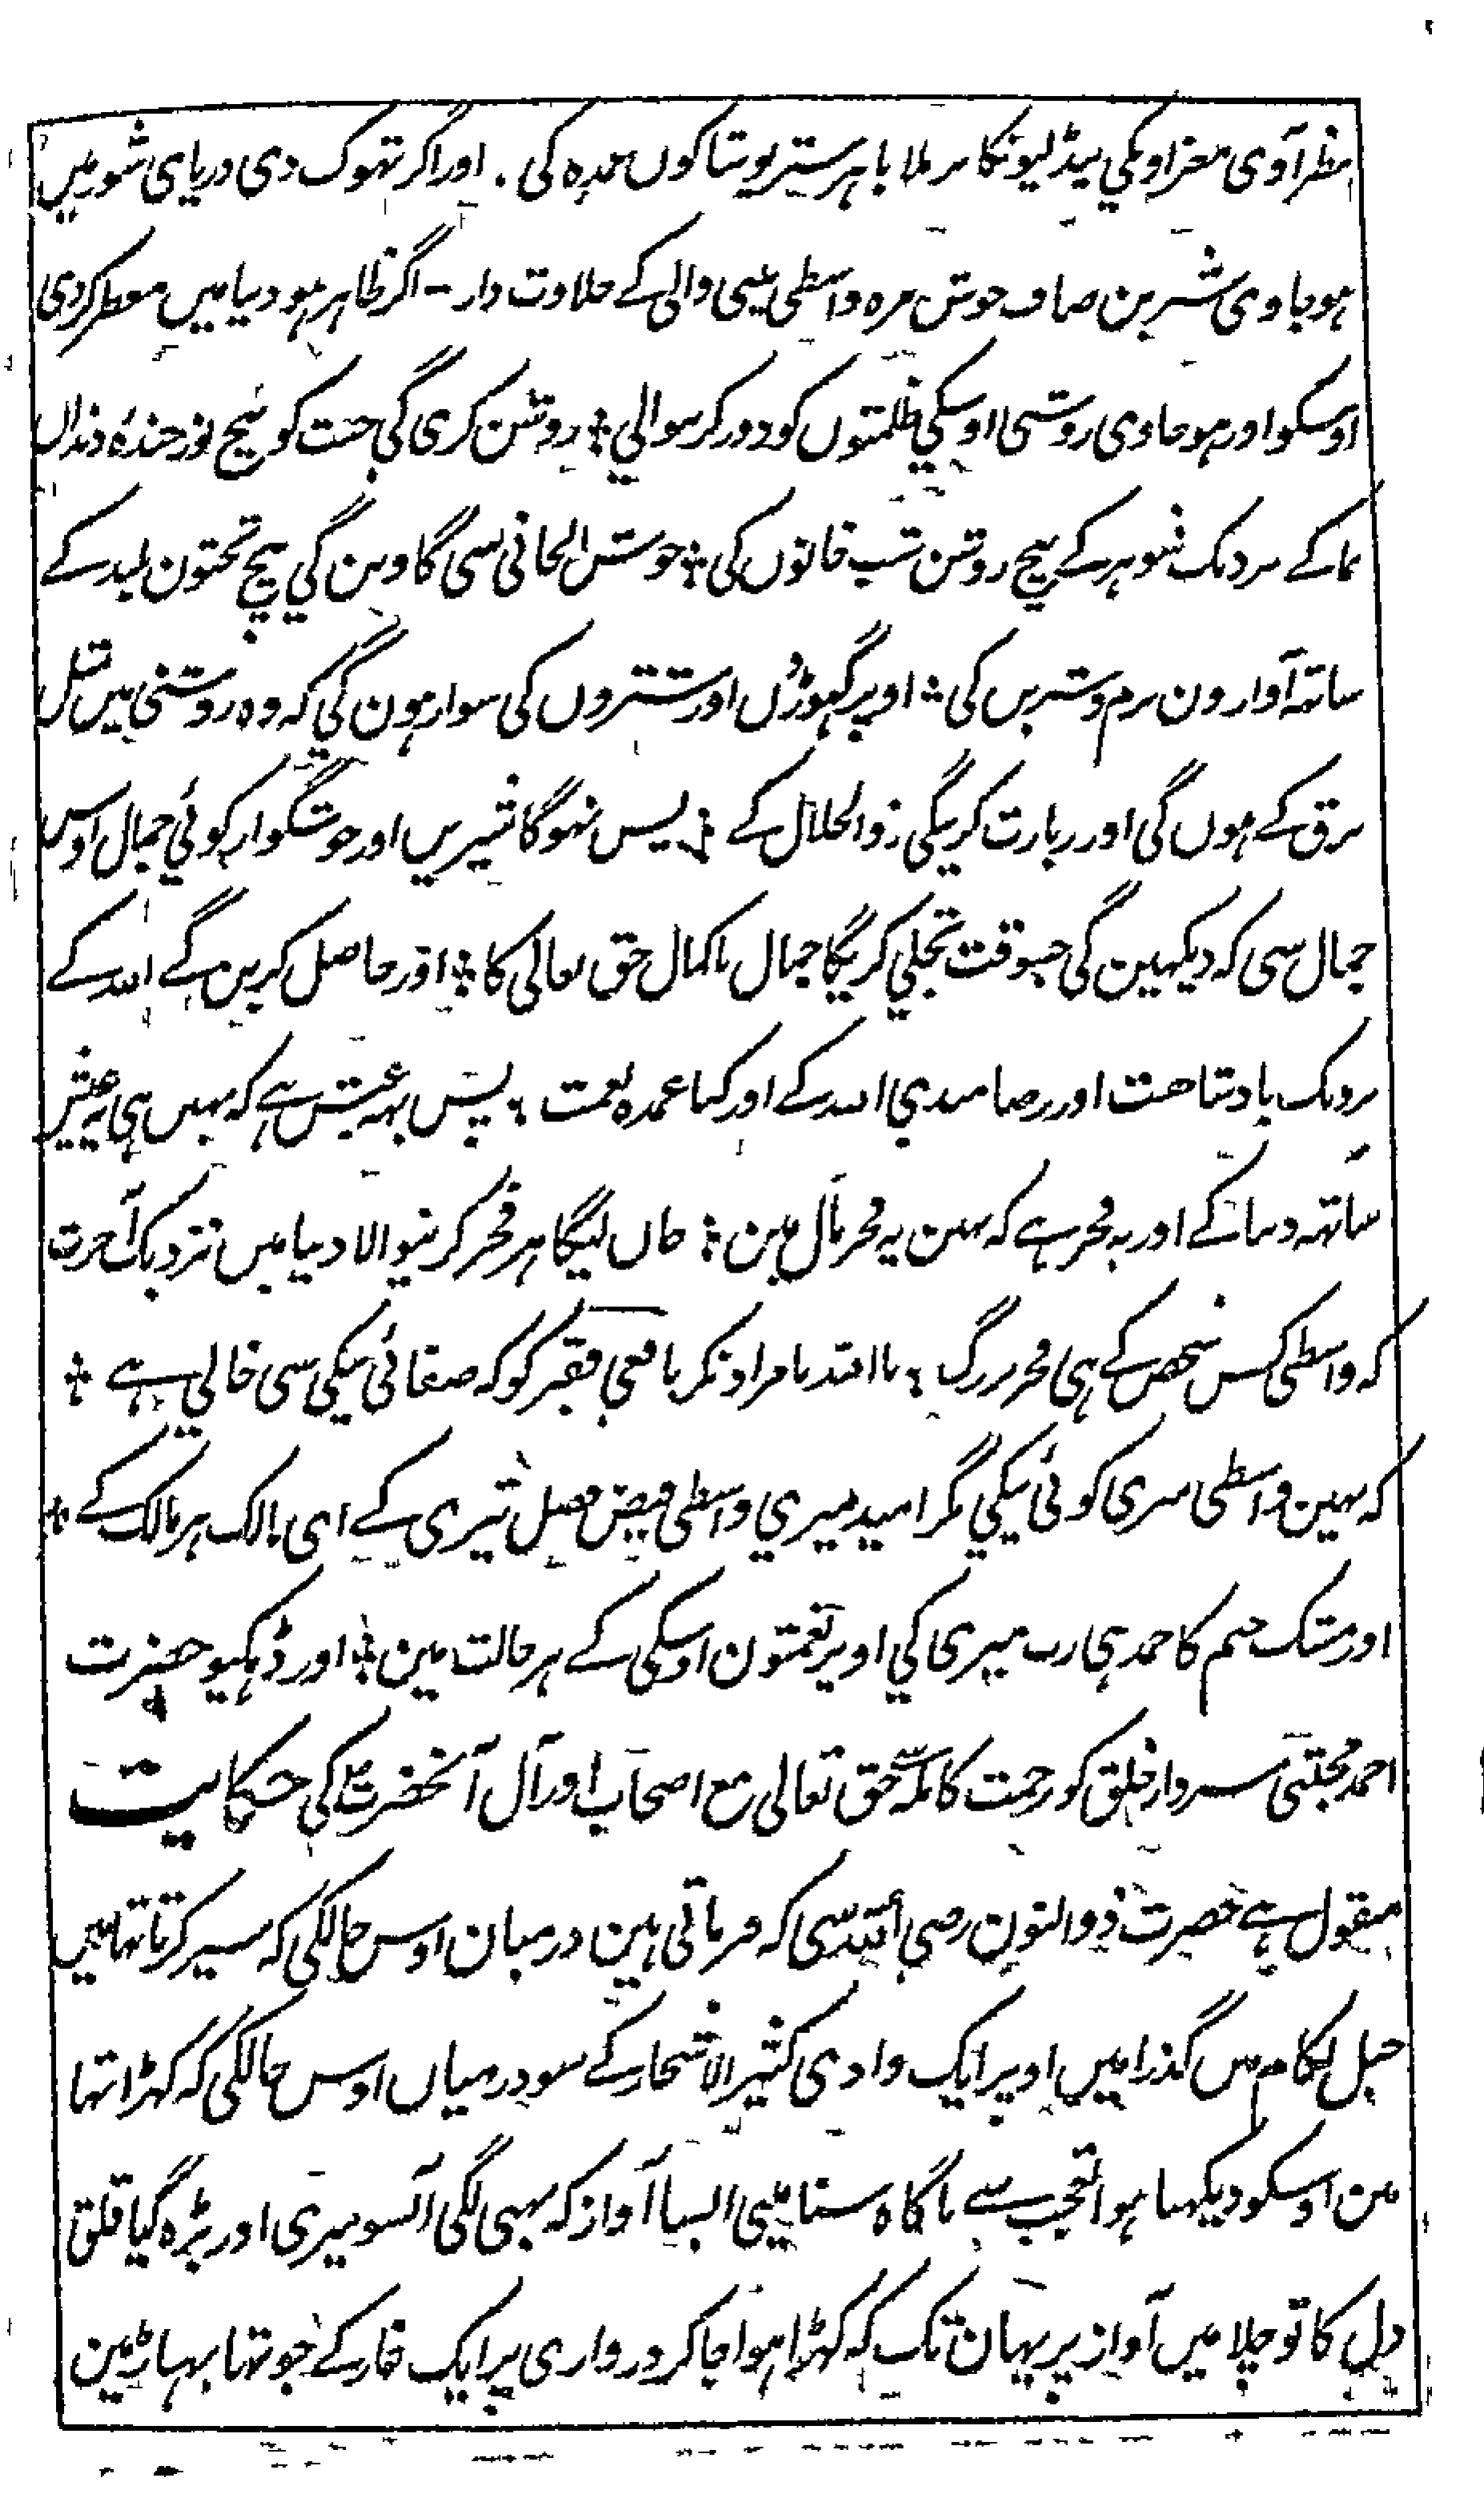 نظر آوی مغز اوکی پنڈلیونکا برملا باہر ستر پوشاکوں عمدہ کی . اور اگر تہوک دی دریای شور میں
ہو جاوی شیرین صاف خوش مزہ واسطی پینی والی کے حلاوت دار - اگر ظاہر ہو دنیا میں معطر کردی
اوسکو اور ہو جاوی روشنی اوسکی ظلمتوں کو دور کرنیوالی ؞ روشن کری گی جنت کو بیچ نور خندۂ دندان
نما کے نزدیک شوہر کے بیچ روشن شب خانوں کی ؞ خوش الحانی سی گاوین گی بیچ تختون بلند کے
ساتہ آوازون نرم و شیریں کی ؞ اوپر گہوڑوں اور شتروں کی سوار ہون گی کہ وہ روشنی میں مثل
برق کے ہوں گی اور زیارت کرینگی ذوالجلال کے ؞ پس نہوگا شیریں اور خوشگوار کوئی جمال اوس
جمال سی کہ دیکہین گی جسوقت تجلی کریگا جمال باکمال حق تعالی کا ؞ اور حاصل کرین گے اللہ کے
نزدیک بادشاهت اور رضامندی اللہ کے اور کیا عمدہ نعمت ؞ پس یہہ عیش ہے کہ نہیں ہی یہ عیش
ساتہہ دنیا کے اور یہ فخر ہے کہ نہین یہ فخر مال مین ؞ جان لیگا ہر فخر کرنیوالا دنیا میں نزدیک آخرت
کہ واسطی کس شخص کے ہی فخر بزرگ ؞ یا اللہ نامراد نکر یافعی فقیر کو کہ صفائی نیکی سی خالی ہے ؞
کہ نہین واسطی میری کوئی نیکی مگر امید میری واسطی فیض فضل تیری کے ای مالک ہر مالک کے ؞
اور مشک ختم کا حمد ہی رب میری کی اوپر نعمتون اوسکی کے ہر حالت مین ؞ اور ڈہکیو حضرت
احمد مجتبی سردار خلق کو رحمت کاملہ حق تعالی مع اصحاب اور آل آنحضرت کی حکایت
منقول ہے حضرت ذوالنون رضی اللہ سی کہ فرماتی ہین درمیان اوس حالکی کہ سیر کرتا تہا میں
جبل لکام میں گذرا میں اوپر ایک وادی کثیر الاشجار کے سو درمیاں اوس حالکی کہ کہڑا تہا
مین اوسکو دیکہتا ہوا تعجب سے ناگاہ سنا مینی ایسا آواز کہ بہی لگی آنسو میری اور بڑہ گیا قلق
دل کا تو چلا میں آواز پر یہان تک کہ کہڑا ہوا جاکر دروازی پر ایک غار کے جو تہا پہاڑ مین